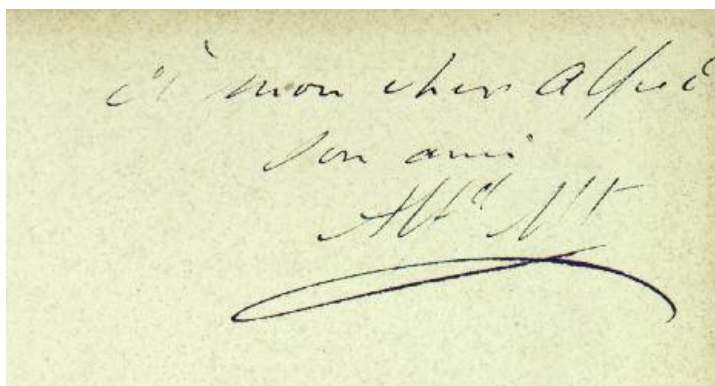 à mon cher Alfred
son ami